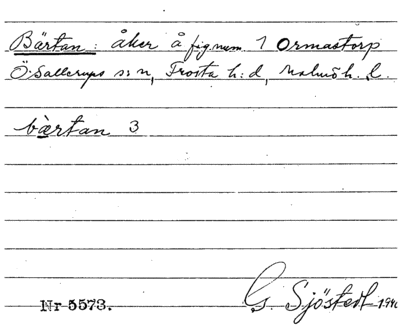 Bärtan: åker å fig.num 1 Ormastorp
Ö. Sallerups s:n, Frosta h:d, Malmöh. l.
bærtan 3
Nr 5573. G. Sjöstedt